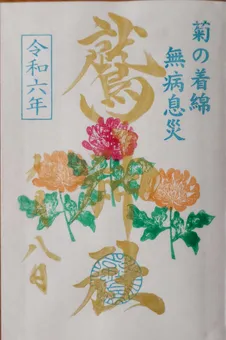 菊の着綿
無病息災
鷲神社
令和六年
八日